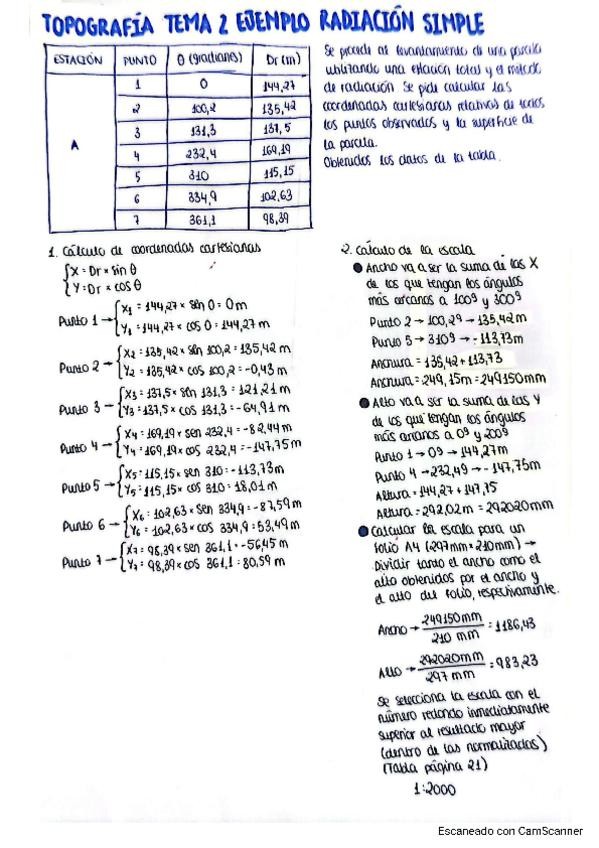 TOPOGRAFÍA TEMA 2 EJEMPLO RADIACIÓN SIMPLE
ESTACIÓN PUNTO θ (gradianes) Dr (m)
A
1 0 144,27
2 100,2 135,42
3 131,3 137,5
4 232,4 169,19
5 310 115,15
6 334,9 102,63
7 361,1 98,39
Se procede al levantamiento de una parcela
utilizando una estación total y el método
de radiación. Se pide calcular las
coordenadas cartesianas relativas de todos
los puntos observados y la superficie de
la parcela.
Obtenidos los datos de la tabla.
1. Cálculo de coordenadas cartesianas
X = Dr × sin θ
Y = Dr × cos θ
Punto 1 → X1 = 144,27 × sen 0 = 0m
Y1 = 144,27 × cos 0 = 144,27 m
Punto 2 → X2 = 135,42 × sen 100,2 = 135,42 m
Y2 = 135,42 × cos 100,2 = -0,43 m
Punto 3 → X3 = 137,5 × sin 131,3 = 121,21 m
Y3 = 137,5 × cos 131,3 = -64,91 m
Punto 4 → X4 = 169,19 × sen 232,4 = -82,44 m
Y4 = 169,19 × cos 232,4 = -147,75 m
Punto 5 → X5 = 115,15 × sen 310 = -113,73m
Y5 = 115,15 × cos 310 = 18,01 m
Punto 6 → X6 = 102,63 × sen 334,9 = -87,59m
Y6 = 102,63 × cos 334,9 = 53,49m
Punto 7 → X7 = 98,39 × sen 361,1 = -56,45 m
Y7 = 98,39 × cos 361,1 = 80,59 m
2. Cálculo de la escala
Ancho va a ser la suma de las X
de los que tengan los ángulos
más arcanos a 100g y 300g
Punto 2 → 100,2g → 135,42 m
Punto 5 → 310g → -113,73m
Anchura = 135,42 + 113,73
Anchura = 249,15m = 249150mm
Alto va a ser la suma de las Y
de los que tengan los ángulos
más arcanos a 0g y 200g
Punto 1 → 0g → 144,27m
Punto 4 → 232,4g → -147,75m
Altura = 144,27 + 147,75
Altura = 292,02m = 292020mm
Calcular la escala para un
folio A4 (297mm × 210mm) →
Dividir tanto el ancho como el
alto obtenidos por el ancho y
el alto del folio, respectivamente.
Ancho → 249150mm / 210 mm = 1186,43
Alto → 292020mm / 297 mm = 983,23
Se selecciona la escala con el
número redondo inmediatamente
superior al resultado mayor
(dentro de las normalizadas)
(Tabla página 21)
1:2000
Escaneado con CamScanner